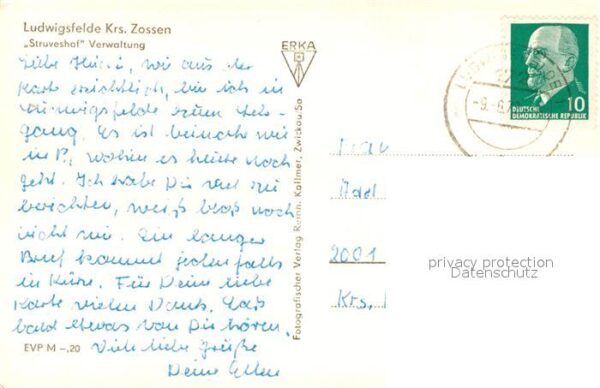 Ludwigsfelde Krs. Zossen
„Struveshof" Verwaltung
Liebe wie aus der
Karte ersichtlich, bin ich in
Ludwigsfelde zum Lehr-
gang. Es ist beinahe wie
in P., wohin es heute noch
geht. Ich habe Dir viel zu
berichten, weiß bloß noch
nicht wie. Ein langer
Brief kommt jedenfalls
in Kürze. Für Deine liebe
Karte vielen Dank. Laß
bald etwas von Dir hören.
Viele liebe Grüße
Deine Ellen
EVP M -,20
ERKA
Fotografischer Verlag Romn. Kallmer, Zwickau/Sa
DEUTSCHE
DEMOKRATISCHE REPUBLIK
10
-9.-6.
2001
Krs.
privacy protection
Datenschutz